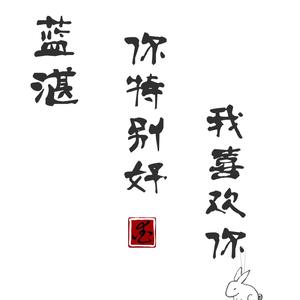 蓝湛
你特别好
我喜欢你